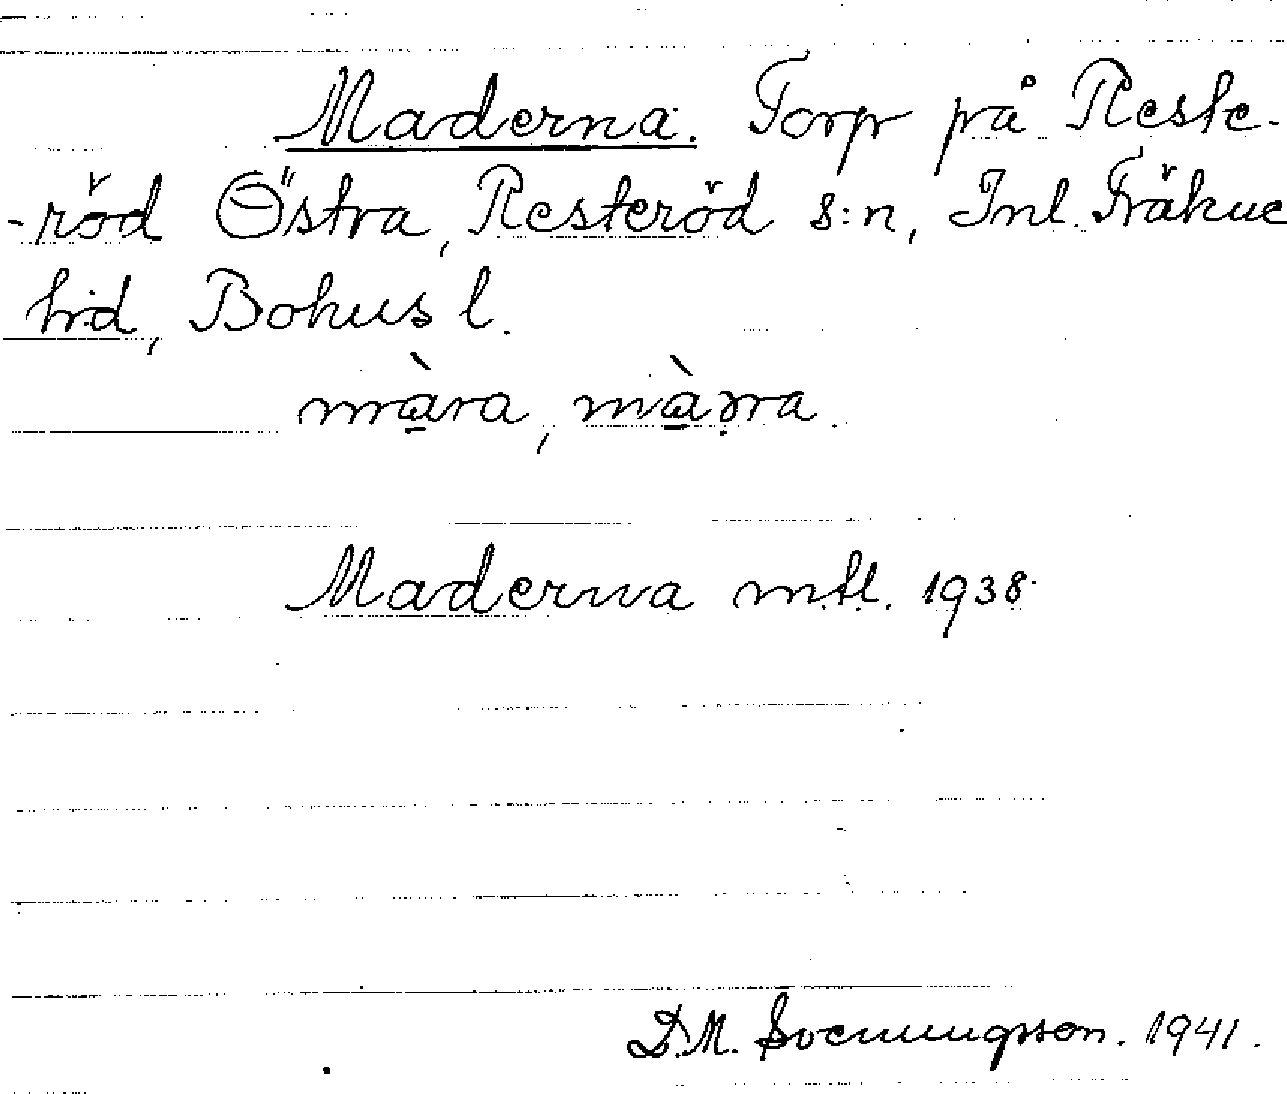 Maderna. Torp på Reste-
-röd Östra, Resteröd s:n, Inl. Fräkne
hrd, Bohus l.
màra, màṇna.
Maderna mtl. 1938.
D.M. Svenningsson. 1941.